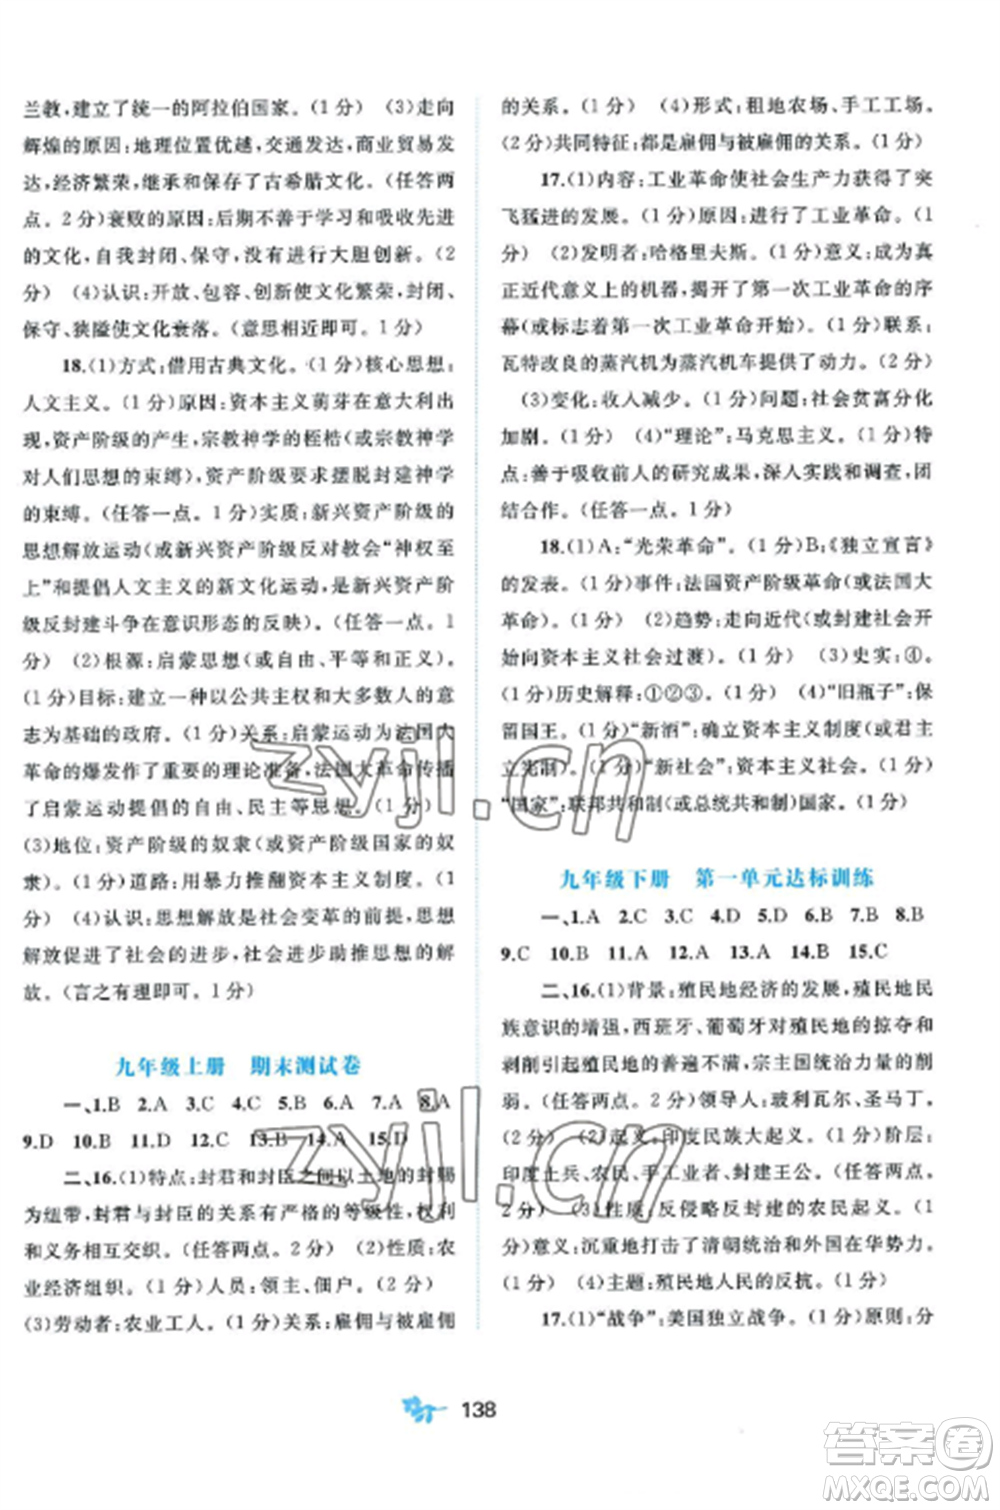 兰教,建立了统一的阿拉伯国家。(1 分) (3)走向
辉煌的原因:地理位置优越,交通发达,商业贸易发
达,经济繁荣,继承和保存了古希腊文化。(任答两
点。2 分)衰败的原因:后期不善于学习和吸收先进
的文化,自我封闭、保守,没有进行大胆创新。(2
分) (4)认识:开放、包容、创新使文化繁荣,封闭、
保守、狭隘使文化衰落。(意思相近即可。1 分)
18.(1)方式:借用古典文化。(1 分)核心思想:
人文主义。(1 分)原因:资本主义萌芽在意大利出
现,资产阶级的产生,宗教神学的桎梏(或宗教神学
对人们思想的束缚),资产阶级要求摆脱封建神学
的束缚。(任答一点。1 分)实质:新兴资产阶级的
思想解放运动(或新兴资产阶级反对教会“神权至
上”和提倡人文主义的新文化运动,是新兴资产阶
级反封建斗争在意识形态的反映)。(任答一点。1
分) (2)根源:启蒙思想(或自由、平等和正义)。
(1 分)目标:建立一种以公共主权和大多数人的意
志为基础的政府。(1 分)关系:启蒙运动为法国大
革命的爆发作了重要的理论准备,法国大革命传播
了启蒙运动提倡的自由、民主等思想。(1 分)
(3)地位:资产阶级的奴隶(或资产阶级国家的奴
隶)。(1 分)道路:用暴力推翻资本主义制度。(1
分) (4)认识:思想解放是社会变革的前提,思想
解放促进了社会的进步,社会进步助推思想的解
放。(言之有理即可。1 分)
九年级上册 期末测试卷
一、1.B 2.A 3.C 4.C 5.B 6.A 7.A 8.A
9.D 10.B 11.D 12.C 13.B 14.A 15.D
二、16.(1)特点:封君和封臣之间以土地的封赐
为纽带,封君与封臣的关系有严格的等级性,权利
和义务相互交织。(任答两点。2 分) (2)性质:农
业经济组织。(1 分)人员:领主、佃户。(2 分)
(3)劳动者:农业工人。(1 分)关系:雇佣与被雇佣
的关系。(1 分) (4)形式:租地农场、手工工场。
(2 分)共同特征:都是雇佣与被雇佣的关系。(1 分)
17.(1)内容:工业革命使社会生产力获得了突
飞猛进的发展。(1 分)原因:进行了工业革命。(1
分) (2)发明者:哈格里夫斯。(1 分)意义:成为真
正近代意义上的机器,揭开了第一次工业革命的序
幕(或标志着第一次工业革命开始)。(1 分)联系:
瓦特改良的蒸汽机为蒸汽机车提供了动力。(1 分)
(3)变化:收入减少。(1 分)问题:社会贫富分化
加剧。(1 分) (4)“理论”:马克思主义。(1 分)特
点:善于吸收前人的研究成果,深入实践和调查,团
结合作。(任答一点。1 分)
18.(1)A:“光荣革命”。(1 分)B:《独立宣言》
的发表。(1 分)事件:法国资产阶级革命(或法国大
革命)。(1 分) (2)趋势:走向近代(或封建社会开
始向资本主义社会过渡)。(1 分) (3)史实:④。
(1 分)历史解释:①②③。(1 分) (4)“旧瓶子”:保
留国王。(1 分)“新酒”:确立资本主义制度(或君主
立宪制)。(1 分)“新社会”:资本主义社会。(1 分)
“国家”:联邦共和制(或总统共和制)国家。(1 分)
九年级下册 第一单元达标训练
一、1.A 2.C 3.C 4.D 5.D 6.B 7.B 8.B
9.C 10.B 11.A 12.A 13.A 14.B 15.C
二、16.(1)背景:殖民地经济的发展,殖民地民
族意识的增强,西班牙、葡萄牙对殖民地的掠夺和
剥削引起殖民地的普遍不满,宗主国统治力量的削
弱。(2 分)领导人:玻利瓦尔、圣马丁。
(2 分) (2)起义:印度民族大起义。(1 分)阶层:
印度土兵、农民、手工业者、封建王公。(任答两点。2
分) (3)性质:反侵略反封建的农民起义。(1
分)意义:沉重地打击了清朝统治和外国在华势力。
(1 分) (4)主题:殖民地人民的反抗。(1 分)
17.(1)“战争”:美国独立战争。(1 分)原则:分
138
zyjl.cn
zyjl.cn
答案圈
MXQE.COM